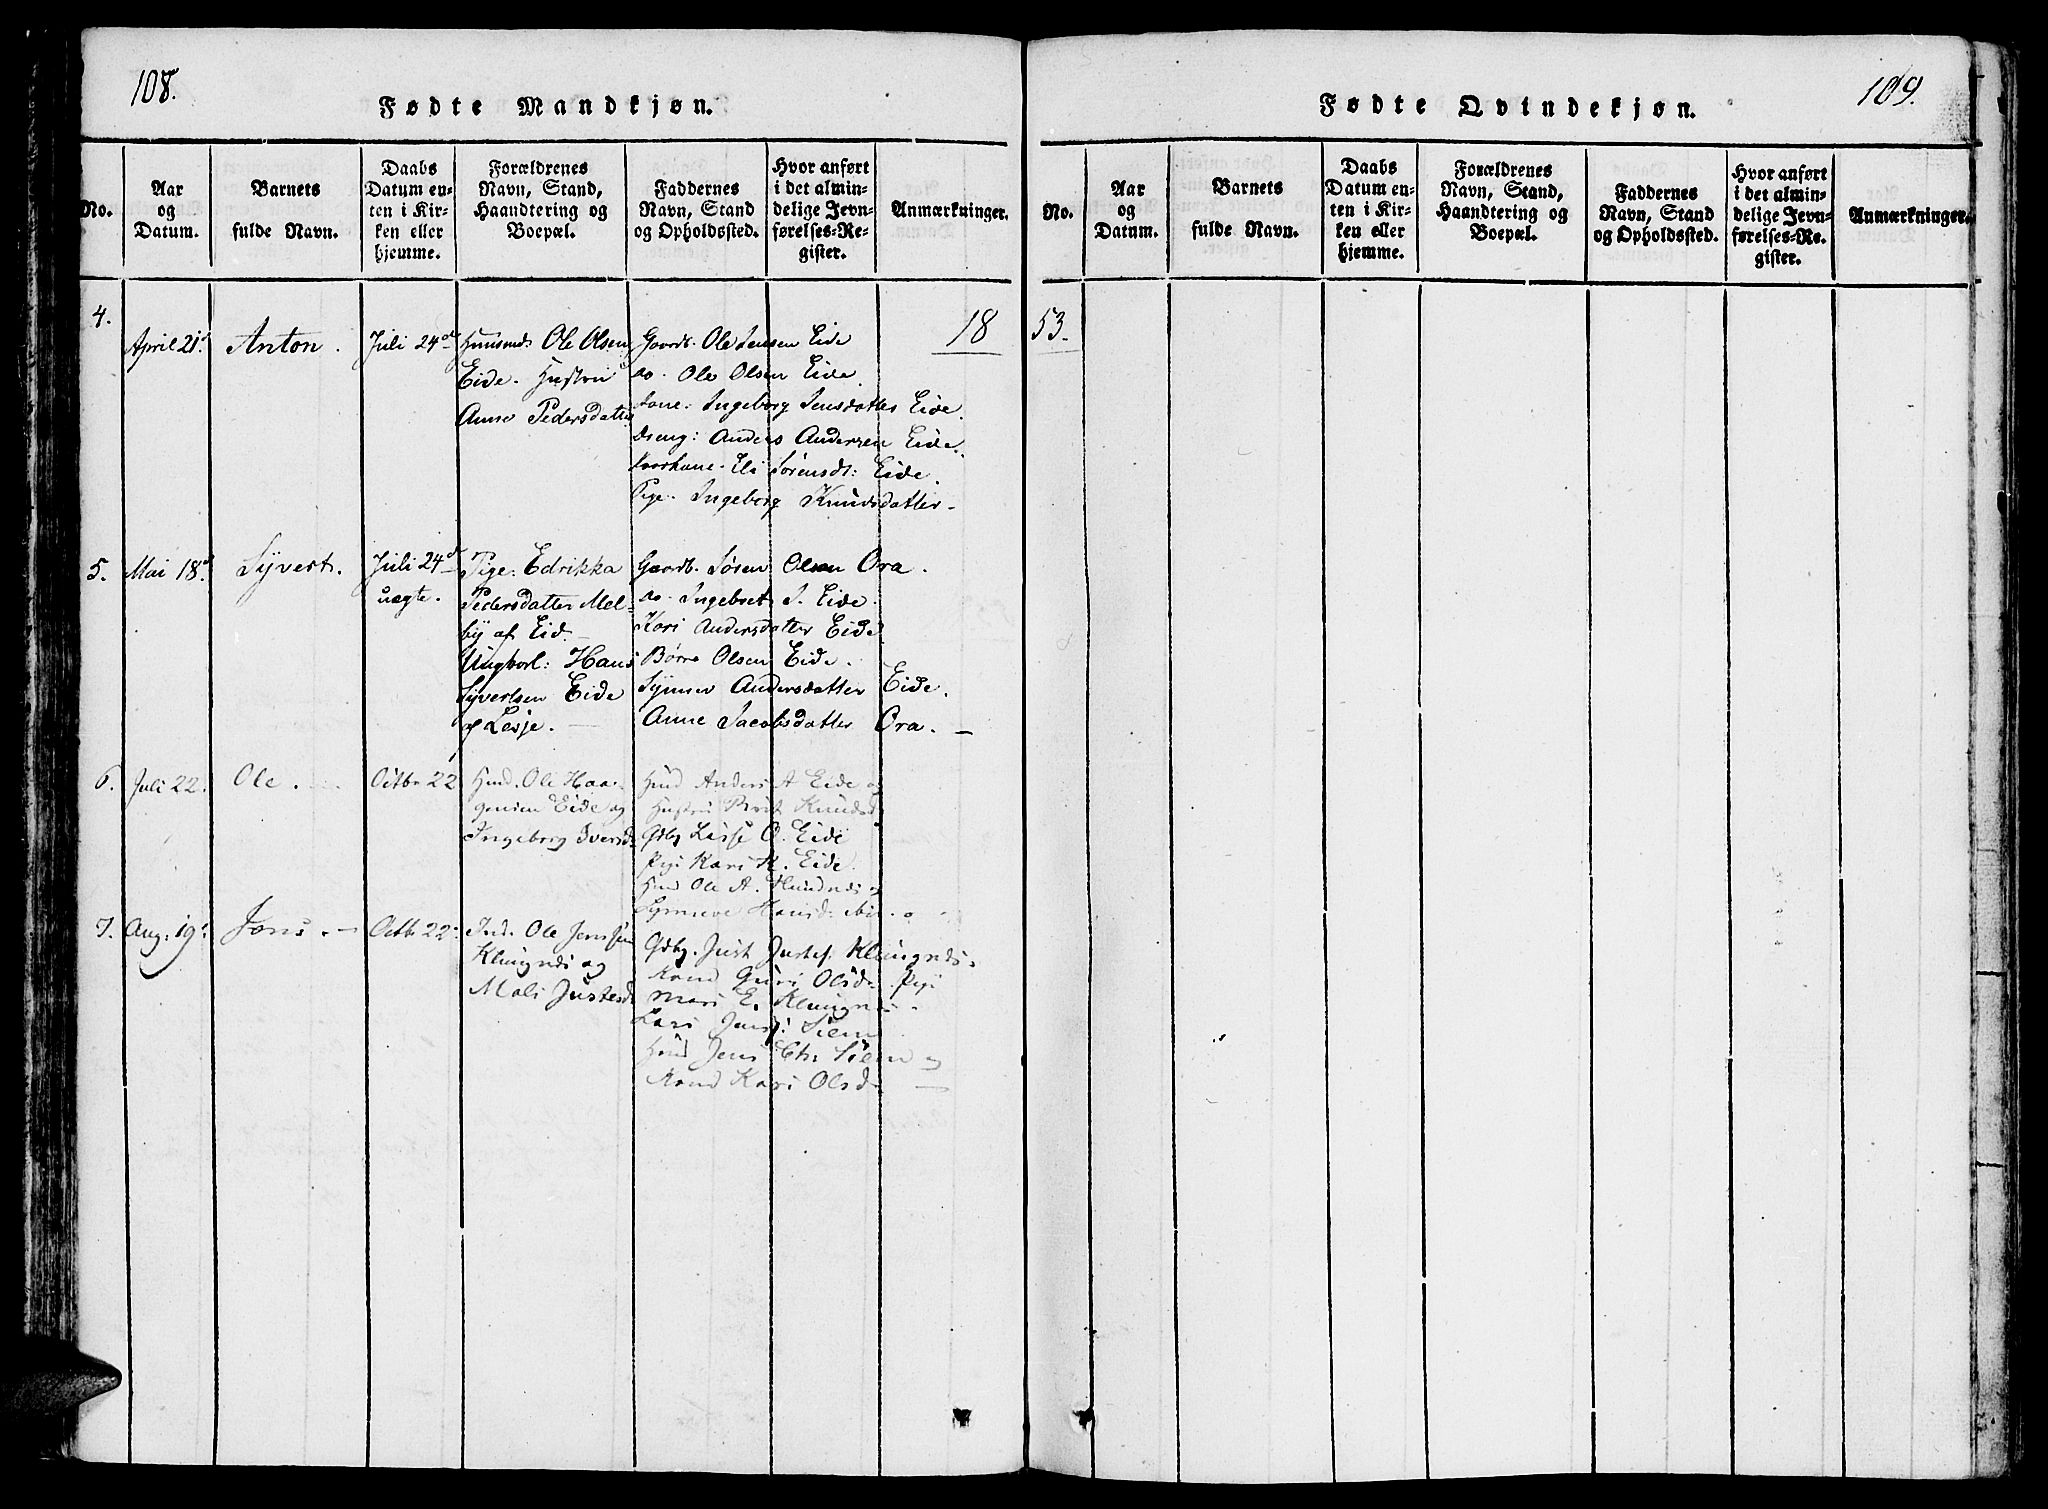 108.
Fødte Mandkjøn.
No.
Aar
og
Datum.
Barnets
fulde Navn.
Daabs
Datum en-
ten i Kir-
ken eller
hjemme.
Forældrenes
Navn, Stand,
Haandtering og
Boepæl.
Faddernes
Navn, Stand
og Opholdssted.
Hvor anført
i det almin-
delige Jevn-
førelses-Re-
gister.
Anmærkninger.
4.
April 21.
Anton.
Juli 24de
Huusmd: Ole Olsen
Eide. Hustrui
Anne Pedersdatter
Gaardb. Ole Jensen Eide
do. Ole Olsen Eide.
Kone: Ingeborg Jensdatter Eide.
Dreng: Anders Andersen Eide.
Eli Sørensdt: Eide.
Pige. Ingeborg Knudsdatter-
18
5.
Mai 18d.
Syvert.
Juli 24d
uægte.
Pige: Edrikka
Pedersdatter Mel-
by af Eid. -
Ungkarl: Hans
Syvertsen Eide
af Lesje. -
Gaardb. Søren Olsen Ora.
do. Ingebret S. Eide.
Kari Andersdatter Eide
Børre Olsen Eide.
Synnev Andersdatter Eide.
Anne Jacobsdatter Ora. -
6.
Juli 22.
Ole.
Octbr 22
Hmd. Ole Haa-
gensen Eide og
Ingeborg Iversd:
Hmd Anders A Eide og
Hustru Brit Knudsd
Gdbg Lasse O. Eide
Pige Kari K. Eide.
Hmd Ole A. og
Synneve Hansd: ibid.
7.
Aug. 19.
Jens. -
Octb. 22.
Ind. Ole Jensen
Klungnes og
Mali Justesd
Gdbg. Just Justes: Klungnes.
Kone Guri Olsd. Pige
Mari E. Klungnes.
Lars Jens: Siem
Hmd Jens Chr Siem og
Kone Kari Olsd. -
109.
Fødte Qvindekjøn.
No.
Aar
og
Datum.
Barnets
fulde Navn.
Daabs
Datum en-
ten i Kir-
ken eller
hjemme.
Forældrenes
Navn, Stand,
Haandtering og
Boepæl.
Faddernes
Navn, Stand
og Opholdssted.
Hvor anført
i det almin-
delige Jevn-
førelses-Re-
gister.
Anmærkninger.
53.